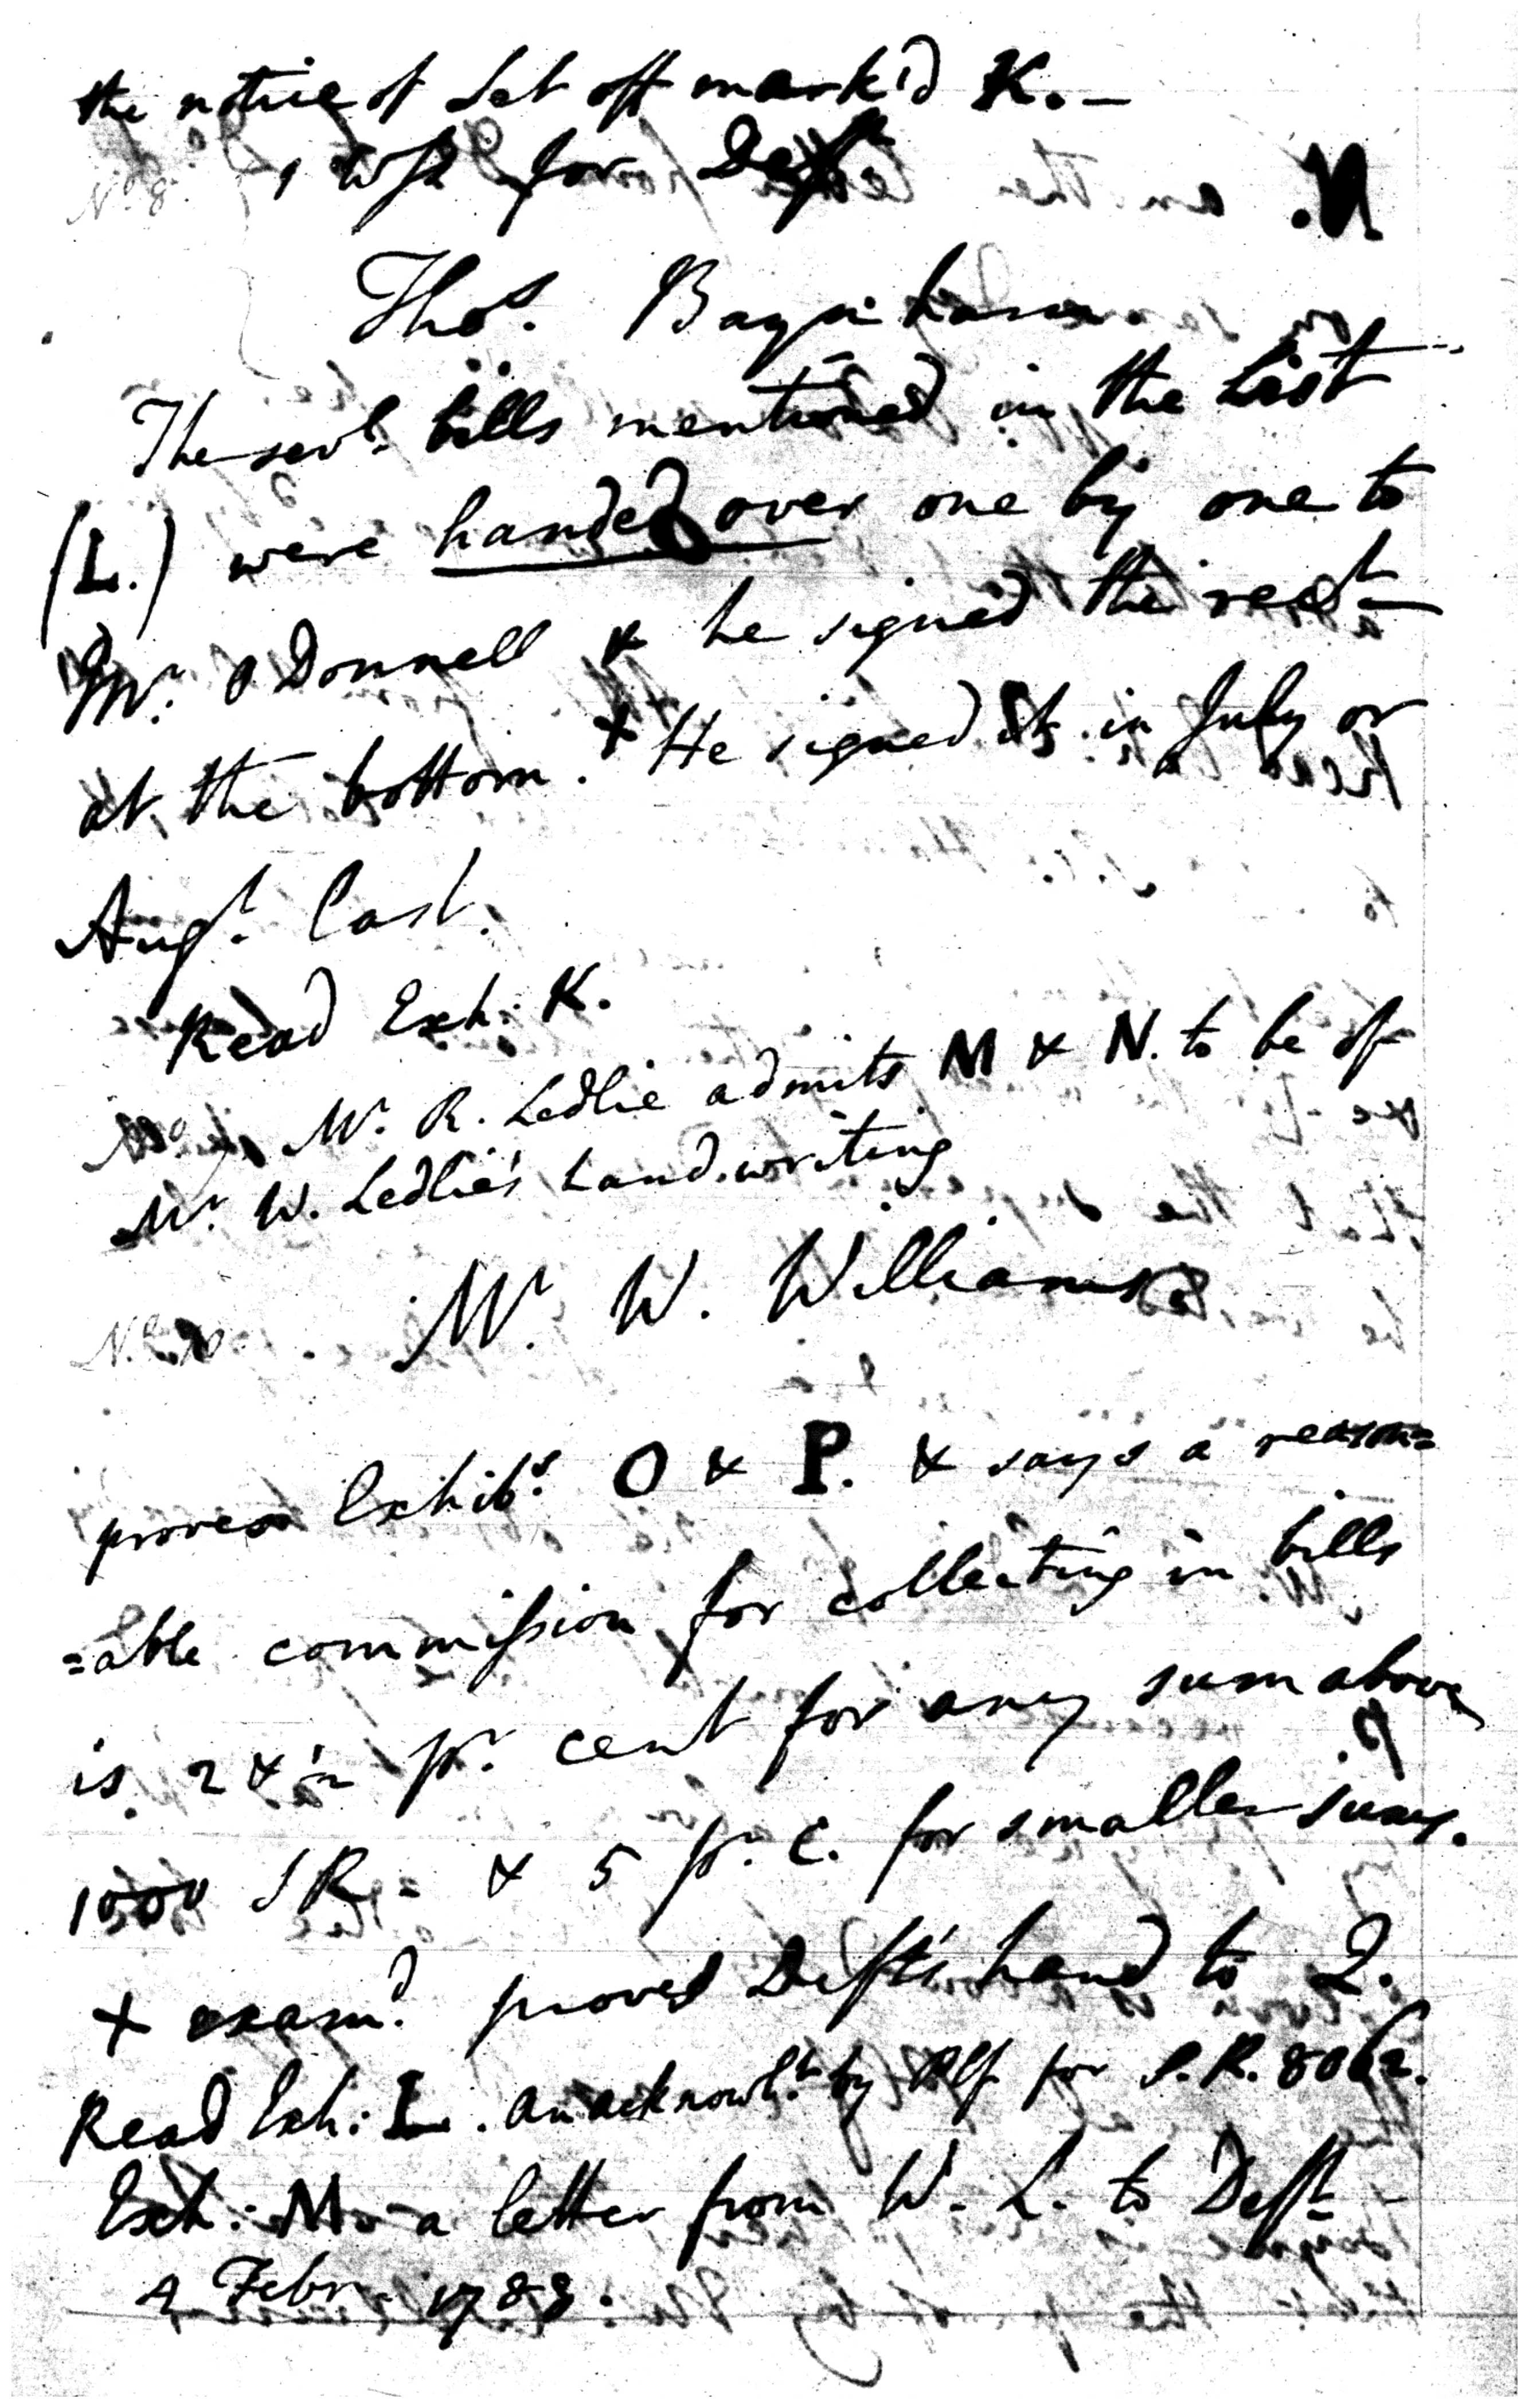 the notice of Set off mark'd K. –
1 Wss for Deft
Thos. Baynham
The sevl. bills mentioned in the List
(L.) were handed over one by one to
Mr. O Donnell & he signed the rect
at the bottom. + He signed it in July or
Augt. last.
Read Exh: K.
Mr. R. Ledlie admits M & N. to be of
Mr. W. Ledlie's hand.writing
Mr W. Williams
proves Exhibs. O & P. & says a reason=
=able commission for collecting in bills
is 2 & ½ pr. cent for any sum above
1000 SR = & 5 pr. C. for smaller sums.
+ examd. proves Defts hand to Q.
Read Exh: L. an acknowlt. by Plf for S.R. 8062.
Exh: M – a letter from W. L. to Deft –
4 Febr. 1788.